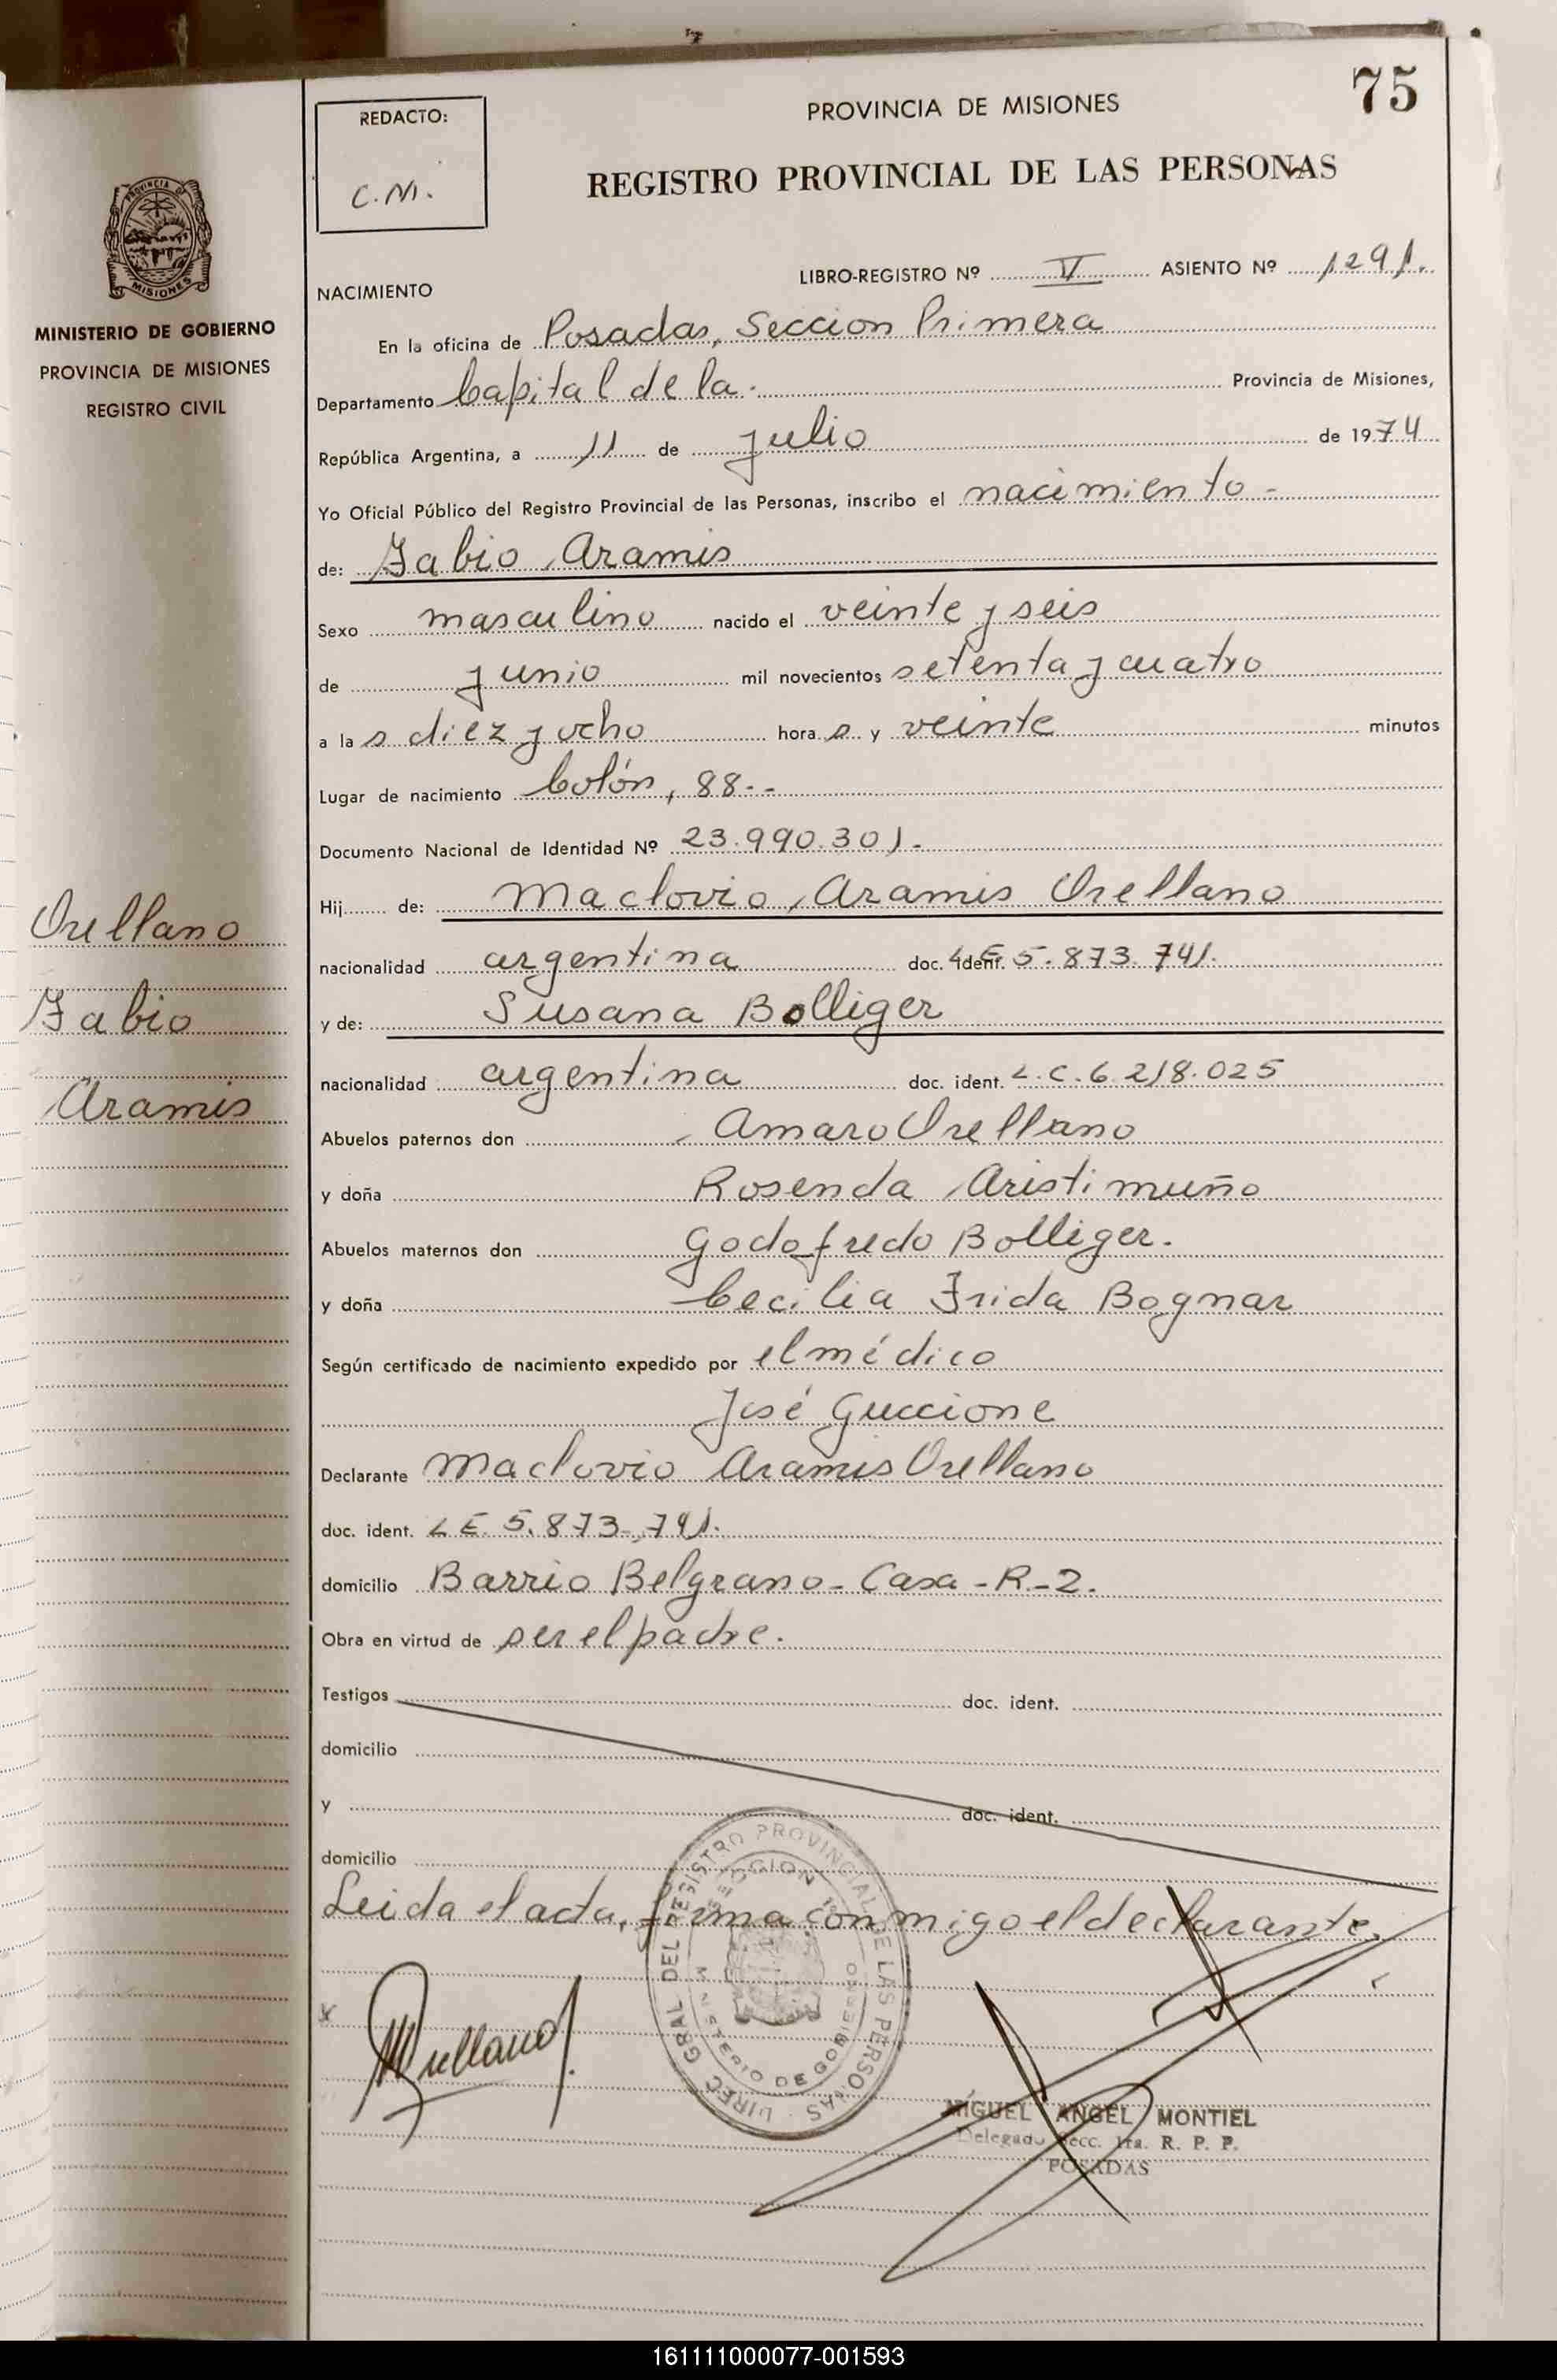 75
REDACTO:
C.M.
PROVINCIA DE MISIONES
REGISTRO PROVINCIAL DE LAS PERSONAS
PROVINCIA DE
MISIONES
MINISTERIO DE GOBIERNO
PROVINCIA DE MISIONES
REGISTRO CIVIL
Orellano
Fabio
Aramis
NACIMIENTO
LIBRO-REGISTRO Nº V ASIENTO Nº 1291.
En la oficina de Posadas, Seccion Primera
Departamento Capital de la. Provincia de Misiones,
República Argentina, a 11 de julio de 1974
Yo Oficial Público del Registro Provincial de las Personas, inscribo el nacimiento -
de: Fabio Aramis
Sexo masculino nacido el veinte y seis
de junio mil novecientos setenta y cuatro
a las diez y ocho horas y veinte minutos
Lugar de nacimiento Colón, 88--
Documento Nacional de Identidad Nº 23.990.301.-
Hij de: Maclovio Aramis Orellano
nacionalidad argentina doc. ident. L E 5.873.741.
y de: Susana Bolliger
nacionalidad argentina doc. ident. L.C. 6.218.025
Abuelos paternos don Amaro Orellano
y doña Rosenda Aristimuño
Abuelos maternos don Godofredo Bolliger.
y doña Cecilia Frida Bognar
Según certificado de nacimiento expedido por el médico
José Guccione
Declarante Maclovio Aramis Orellano
doc. ident. L E. 5.873.741.
domicilio Barrio Belgrano - Casa - R-2.
Obra en virtud de ser el padre.
Testigos doc. ident.
domicilio
y doc. ident.
domicilio
Leida el acta, firma conmigo el declarante.
DIREC GRAL DEL REGISTRO PROVINCIAL DE LAS PERSONAS
SECCION 1ª
MINISTERIO DE GOBIERNO
MIGUEL ANGEL MONTIEL
Delegado Secc. 1ra. R. P. P.
POSADAS
161111000077-001593